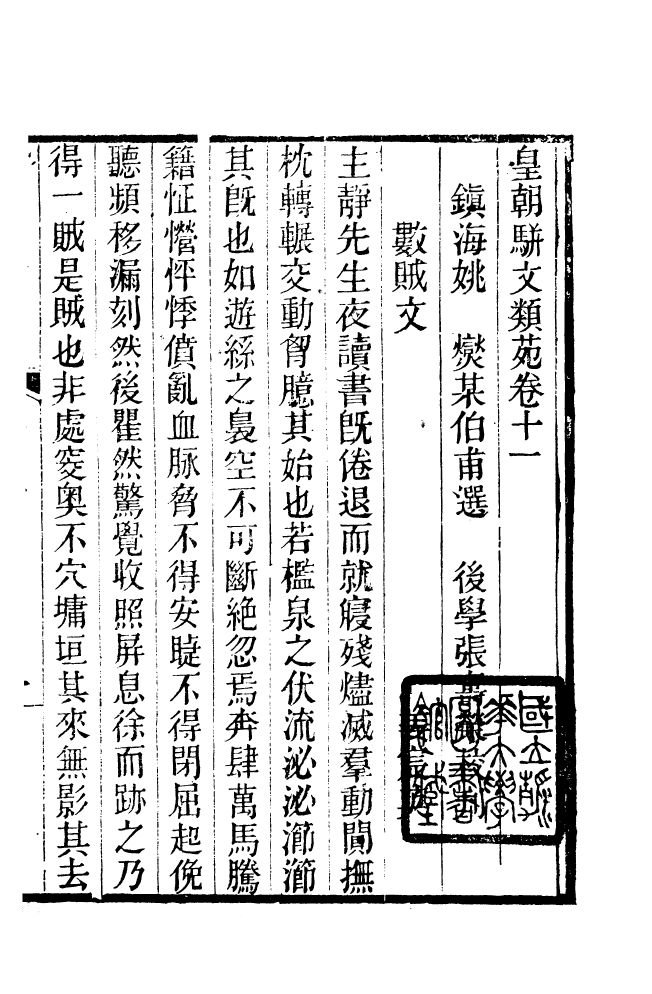 皇朝駢文類苑卷十一
鎭海姚 燮某伯甫選 後學張壽榮
數賊文
主靜先生夜讀書旣倦退而就寢殘燼滅羣動閴撫
枕轉輾交動胷臆其始也若檻泉之伏流泌泌瀄瀄
其旣也如遊絲之裊空不可斷絶忽焉奔肆萬馬騰
籍怔憕怦悸僨亂血脈脅不得安睫不得閉屈起俛
聽頻移漏刻然後瞿然驚覺收照屏息徐而跡之乃
得一賊是賊也非處窔奥不穴墉垣其來無影其去
國立